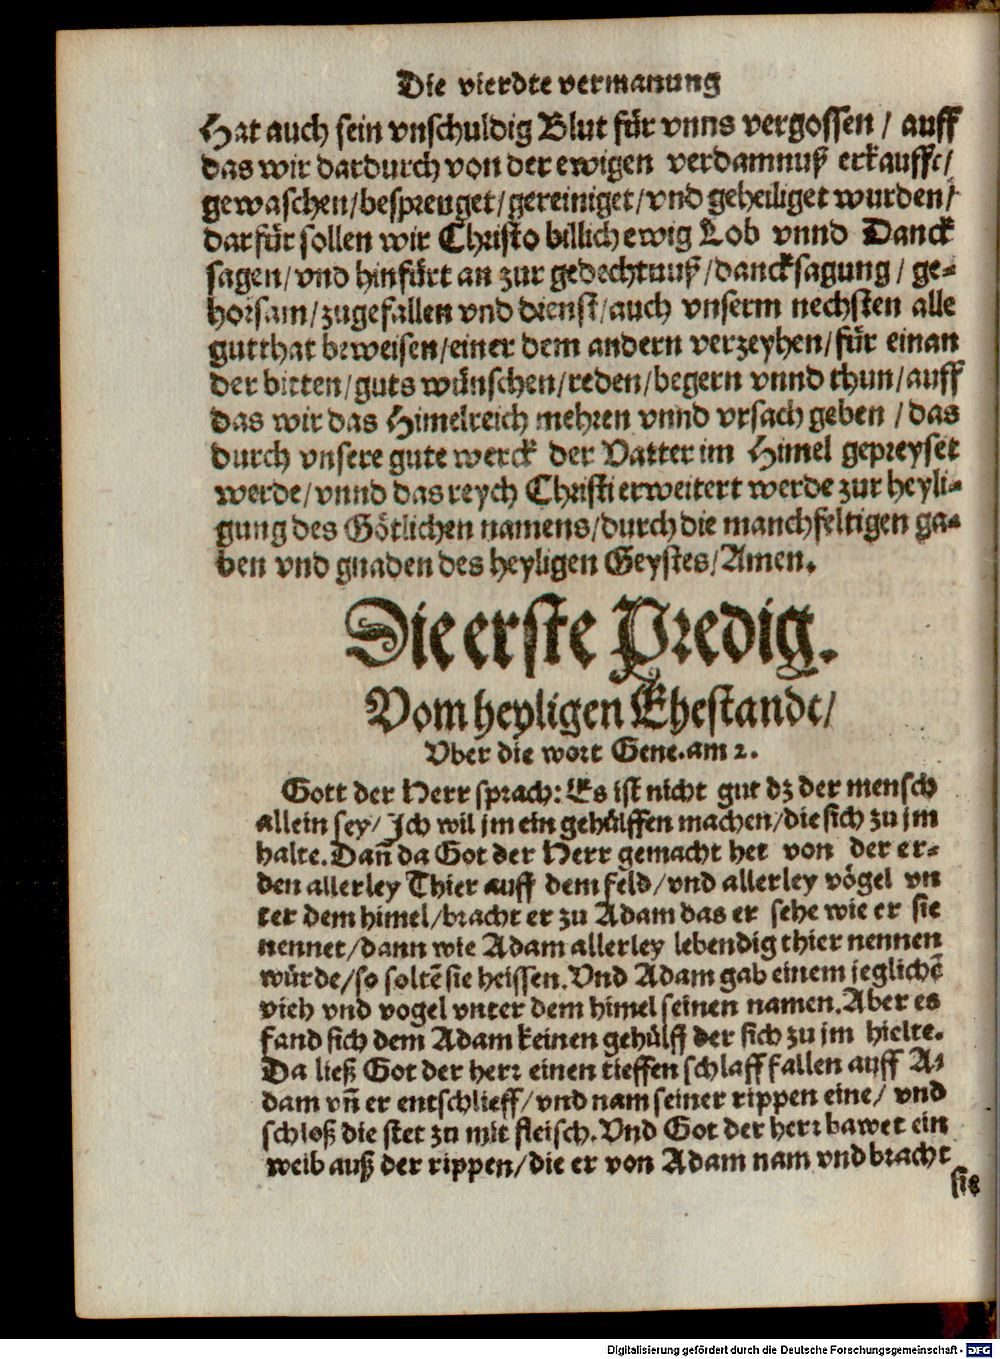 Die vierdte vermanung
Hat auch sein vnschuldig Blut für vnns vergossen / auff
das wir dardurch von der ewigen verdamnuß erkaufft/
gewaschen/besprenget/gereiniget/vnd geheiliget wurden/
darfür sollen wir Christo billich ewig Lob vnnd Danck
sagen/vnd hinfürt an zur gedechtnuß/dancksagung / ge-
horsam/zugefallen vnd dienst/auch vnserm nechsten alle
gutthat beweisen/einer dem andern verzeyhen/für einan
der bitten/guts wünschen/reden/begern vnnd thun/auff
das wir das Himelreich mehren vnnd vrsach geben / das
durch vnsere gute werck der Vatter im Himel gepreyset
werde/vnnd das reych Christi erweitert werde zur heyli-
gung des Götlichen namens/durch die manchfeltigen ga-
ben vnd gnaden des heyligen Geystes/Amen.
Die erste Predig.
Vom heyligen Ehestandt/
Vber die wort Gene. am 2.
Gott der Herr sprach: Es ist nicht gut dz der mensch
allein sey/ Ich wil jm ein gehülffen machen/die sich zu jm
halte. Dañ da Got der Herr gemacht het von der er-
den allerley Thier auff dem feld/vnd allerley vögel vn
ter dem himel/bracht er zu Adam das er sehe wie er sie
nennet/dann wie Adam allerley lebendig thier nennen
würde/so soltē sie heissen. Vnd Adam gab einem jeglichē
vieh vnd vogel vnter dem himel seinen namen. Aber es
fand sich dem Adam keinen gehülff der sich zu jm hielte.
Da ließ Got der herr einen tieffen schlaff fallen auff A-
dam vñ er entschlieff/vnd nam seiner rippen eine/ vnd
schloß die stet zu mit fleisch. Vnd Got der herr bawet ein
weib auß der rippen/die er von Adam nam vnd bracht
sie
Digitalisierung gefördert durch die Deutsche Forschungsgemeinschaft - DFG